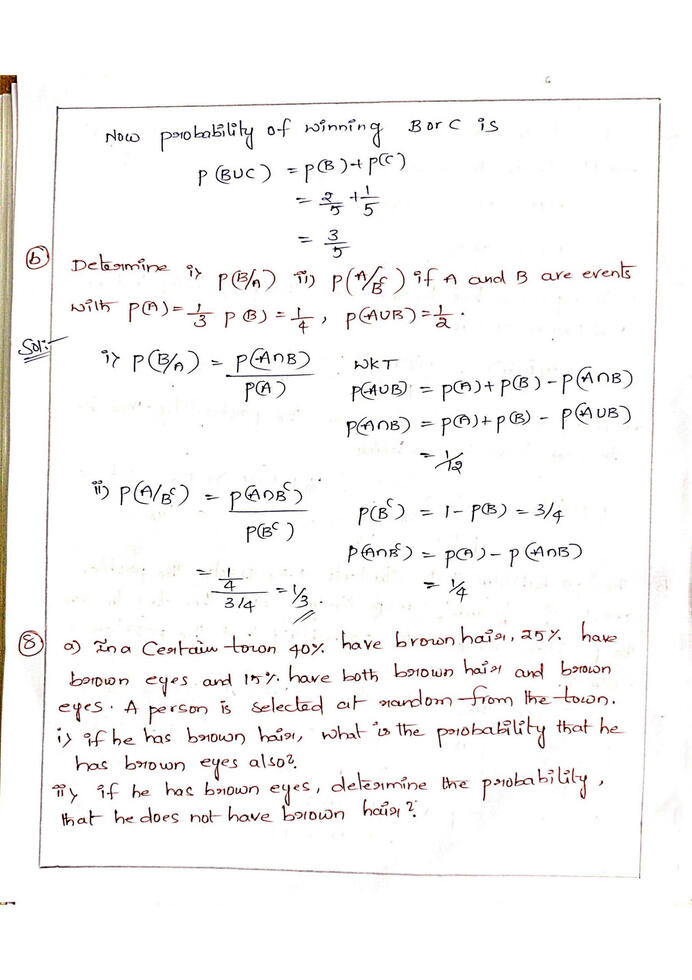 Now probability of winning B or C is
P(BUC) = P(B)+P(C)
= 2/5 + 1/5
= 3/5
(b) Determine i) P(B/A) ii) P(A/B^c) if A and B are events
with P(A)=1/3 P(B)=1/4, P(AUB)=1/2.
Sol:-
i) P(B/A) = P(A∩B)/P(A)
WKT
P(AUB) = P(A)+P(B)-P(A∩B)
P(A∩B) = P(A)+P(B)-P(AUB)
= 1/12
ii) P(A/B^c) = P(A∩B^c)/P(B^c)
P(B^c) = 1-P(B) = 3/4
P(A∩B^c) = P(A)-P(A∩B)
= 1/4
= 1/4/3/4 = 1/3.
(8) a) In a Certain town 40% have brown hair, 25% have
brown eyes and 15% have both brown hair and brown
eyes. A person is selected at random from the town.
i) if he has brown hair, what is the probability that he
has brown eyes also?
ii) if he has brown eyes, determine the probability,
that he does not have brown hair?